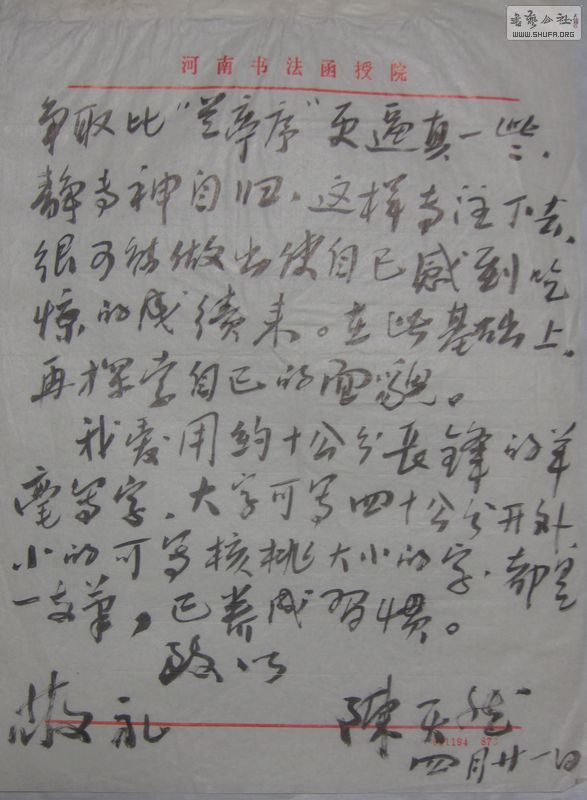 书艺公社
WWW.SHUFA.ORG
河南书法函授院
争取比“兰亭序”更逼真一些、
静专神自归。这样专注下去、
很可能做出使自己感到吃
惊的成绩来。在此基础上、
再探索自己的面貌。
我爱用约十公分长锋的羊
毫写字、大字可写四十公分开外
小的可写核桃大小的字、都是
一支笔，已养成习惯。
致以
敬礼
陈天然
四月廿一日